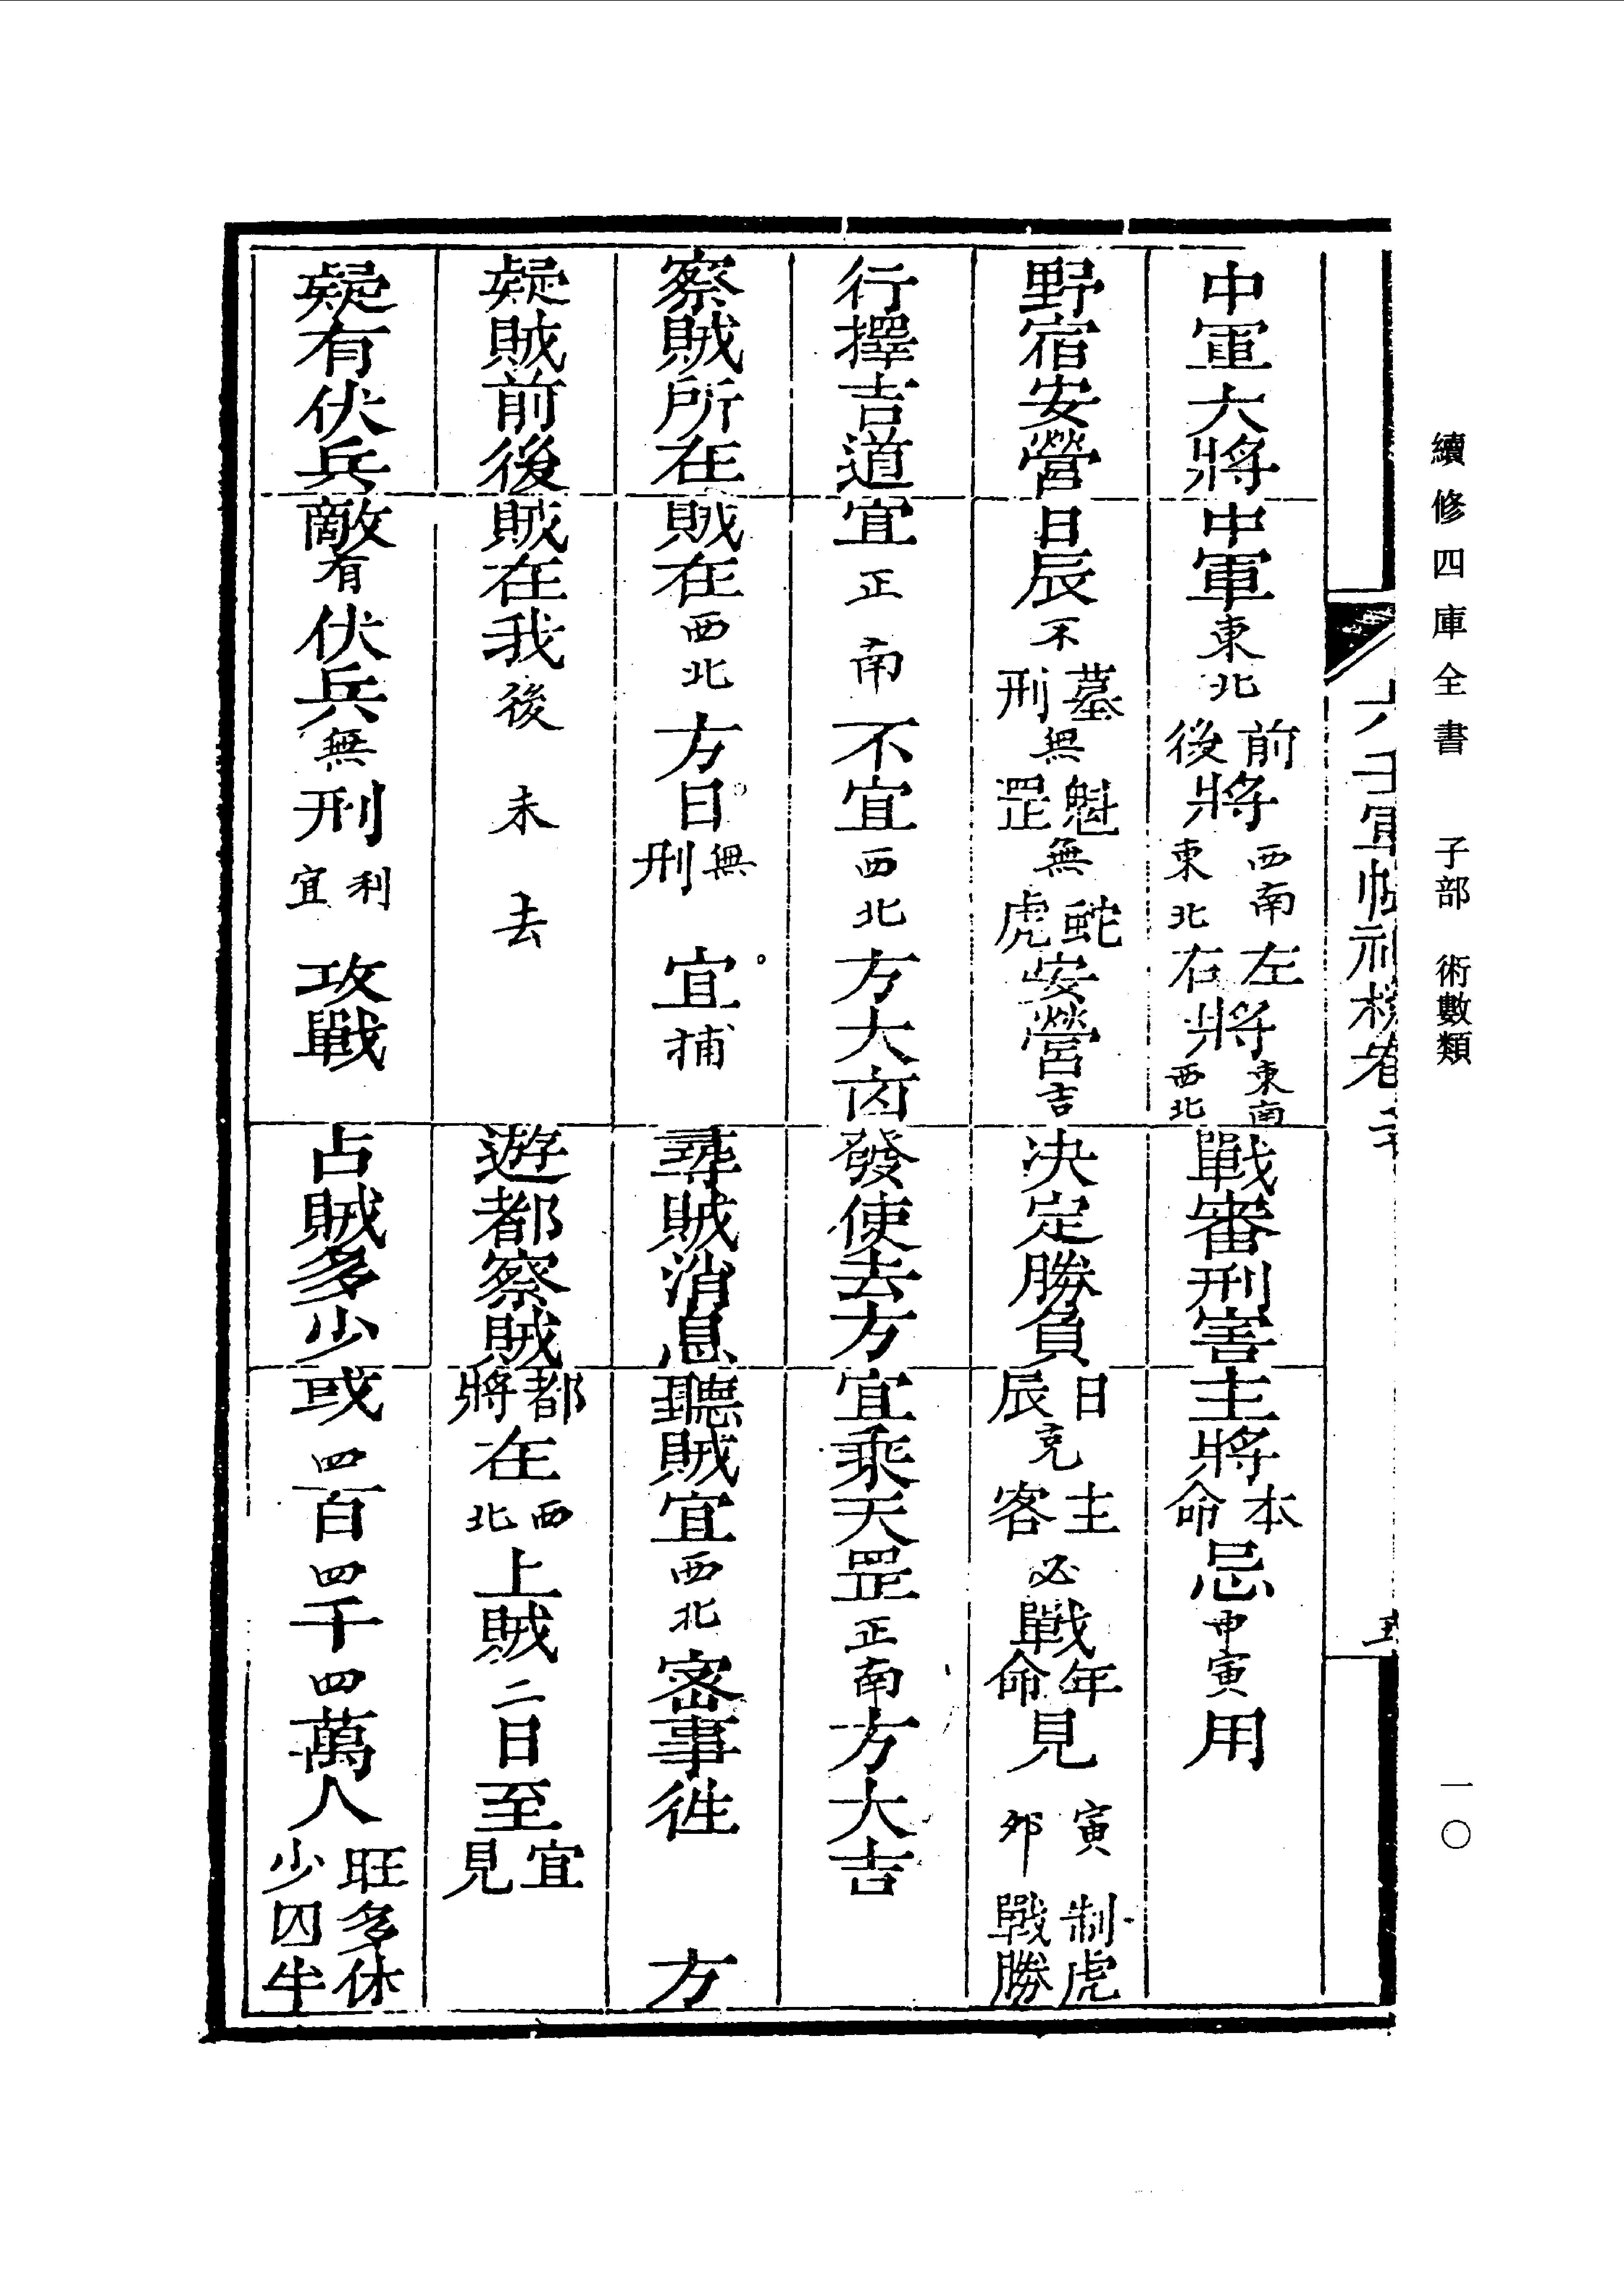 續修四庫全書 子部 術數類
一〇
六壬軍帳神機卷
中軍大將 中軍東北前後將西南東北左右將東南西北 戰審刑害 主將本命忌申寅用
野宿安營 日辰不墓刑無魁罡無蛇虎安營吉 決定勝負 日辰克主客必戰年命見寅卯制虎戰勝
行擇吉道 宜正南不宜西北方大凶 發使去方 宜乘天罡正南方大吉
察賊所在 賊在西北方日無刑宜捕 尋賊消息 聽賊宜西北密事徃方
疑賊前後 賊在我後未去 遊都察賊 都將在西北上賊二日至宜見
疑有伏兵 敵有伏兵無刑利宜攻戰 占賊多少 或四百四千四萬人旺多休少囚半